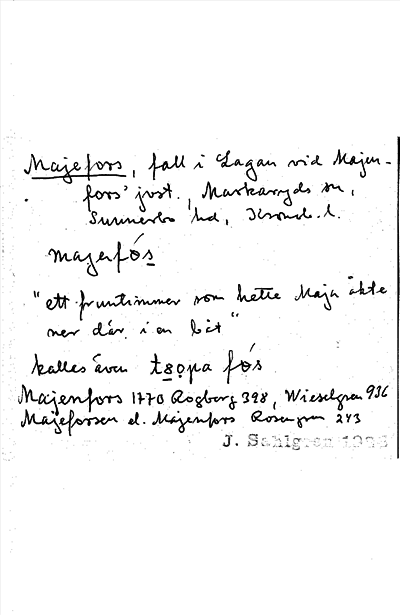 Majefors, fall i Lagan vid Majen-
fors' just., Markaryds sn,
Sunnerbo hd, Kronob. l.
majəfós
"ett fruntimmer som hette Maja åkte
ner där i en båt"
kalles även tsopa fós
Majenfors 1770 Rogberg 398, Wieselgren 936
Majeforsen el. Majenfors Rosengren 243
J. Sahlgren